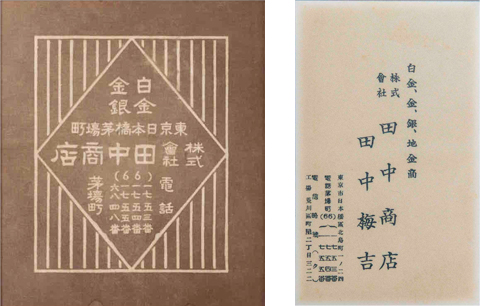 白金
金銀
東京日本橋茅場町
株式會社田中商店
電話
茅場町
(66)
一七五三番
一七五四番
一七五五番
六八四八番
白金、金、銀、地金商
株式會社 田中商店
田中梅吉
東京市日本橋區北島町一ノ二四
電話茅場町(66)
一七五三
一七五四
一七五五番